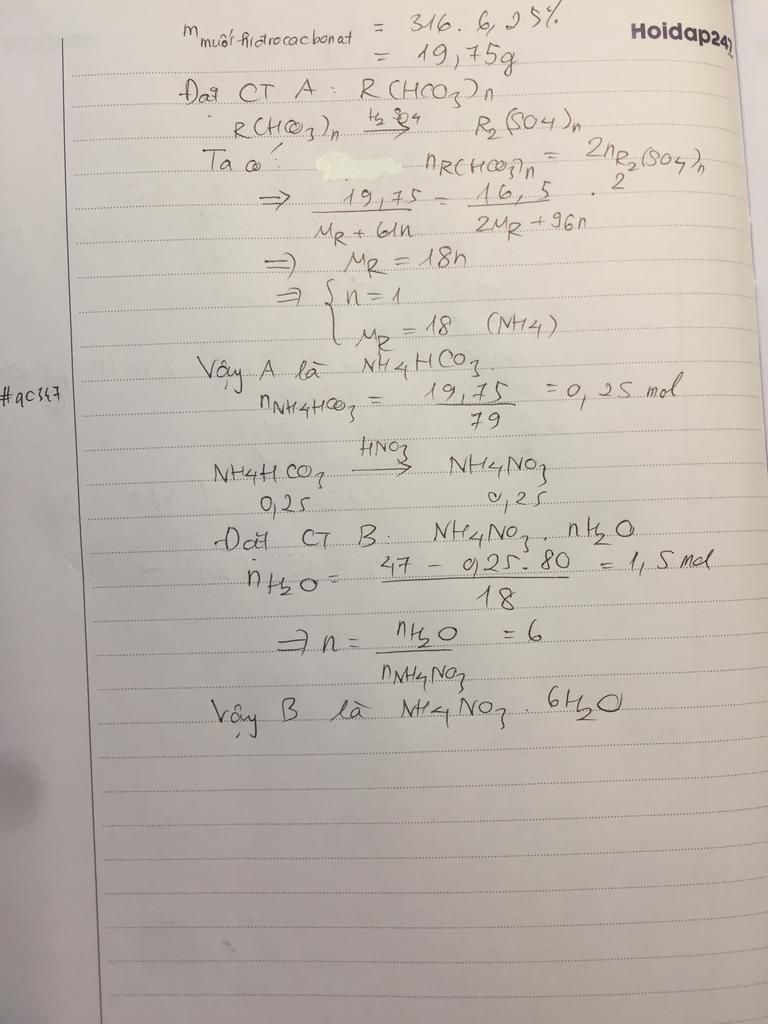 m muối hiđrocacbonat = 316. 6,25%
Hoidap247
= 19,75g
Đặt CT A: R(HCO3)n
R(HCO3)n H2SO4→ R2(SO4)n
Ta có: nR(HCO3)n = 2nR2(SO4)n
=> 19,75/MR + 61n = 16,5/2MR + 96n . 2
=> MR = 18n
=> { n = 1
MR = 18 (NH4)
Vậy A là NH4HCO3
#qc347
nNH4HCO3 = 19,75/79 = 0,25 mol
NH4HCO3 HNO3→ NH4NO3
0,25 0,25
Đặt CT B: NH4NO3. nH2O
nH2O = 47 - 0,25.80/18 = 1,5 mol
=> n = nH2O/nNH4NO3 = 6
Vậy B là NH4NO3. 6H2O